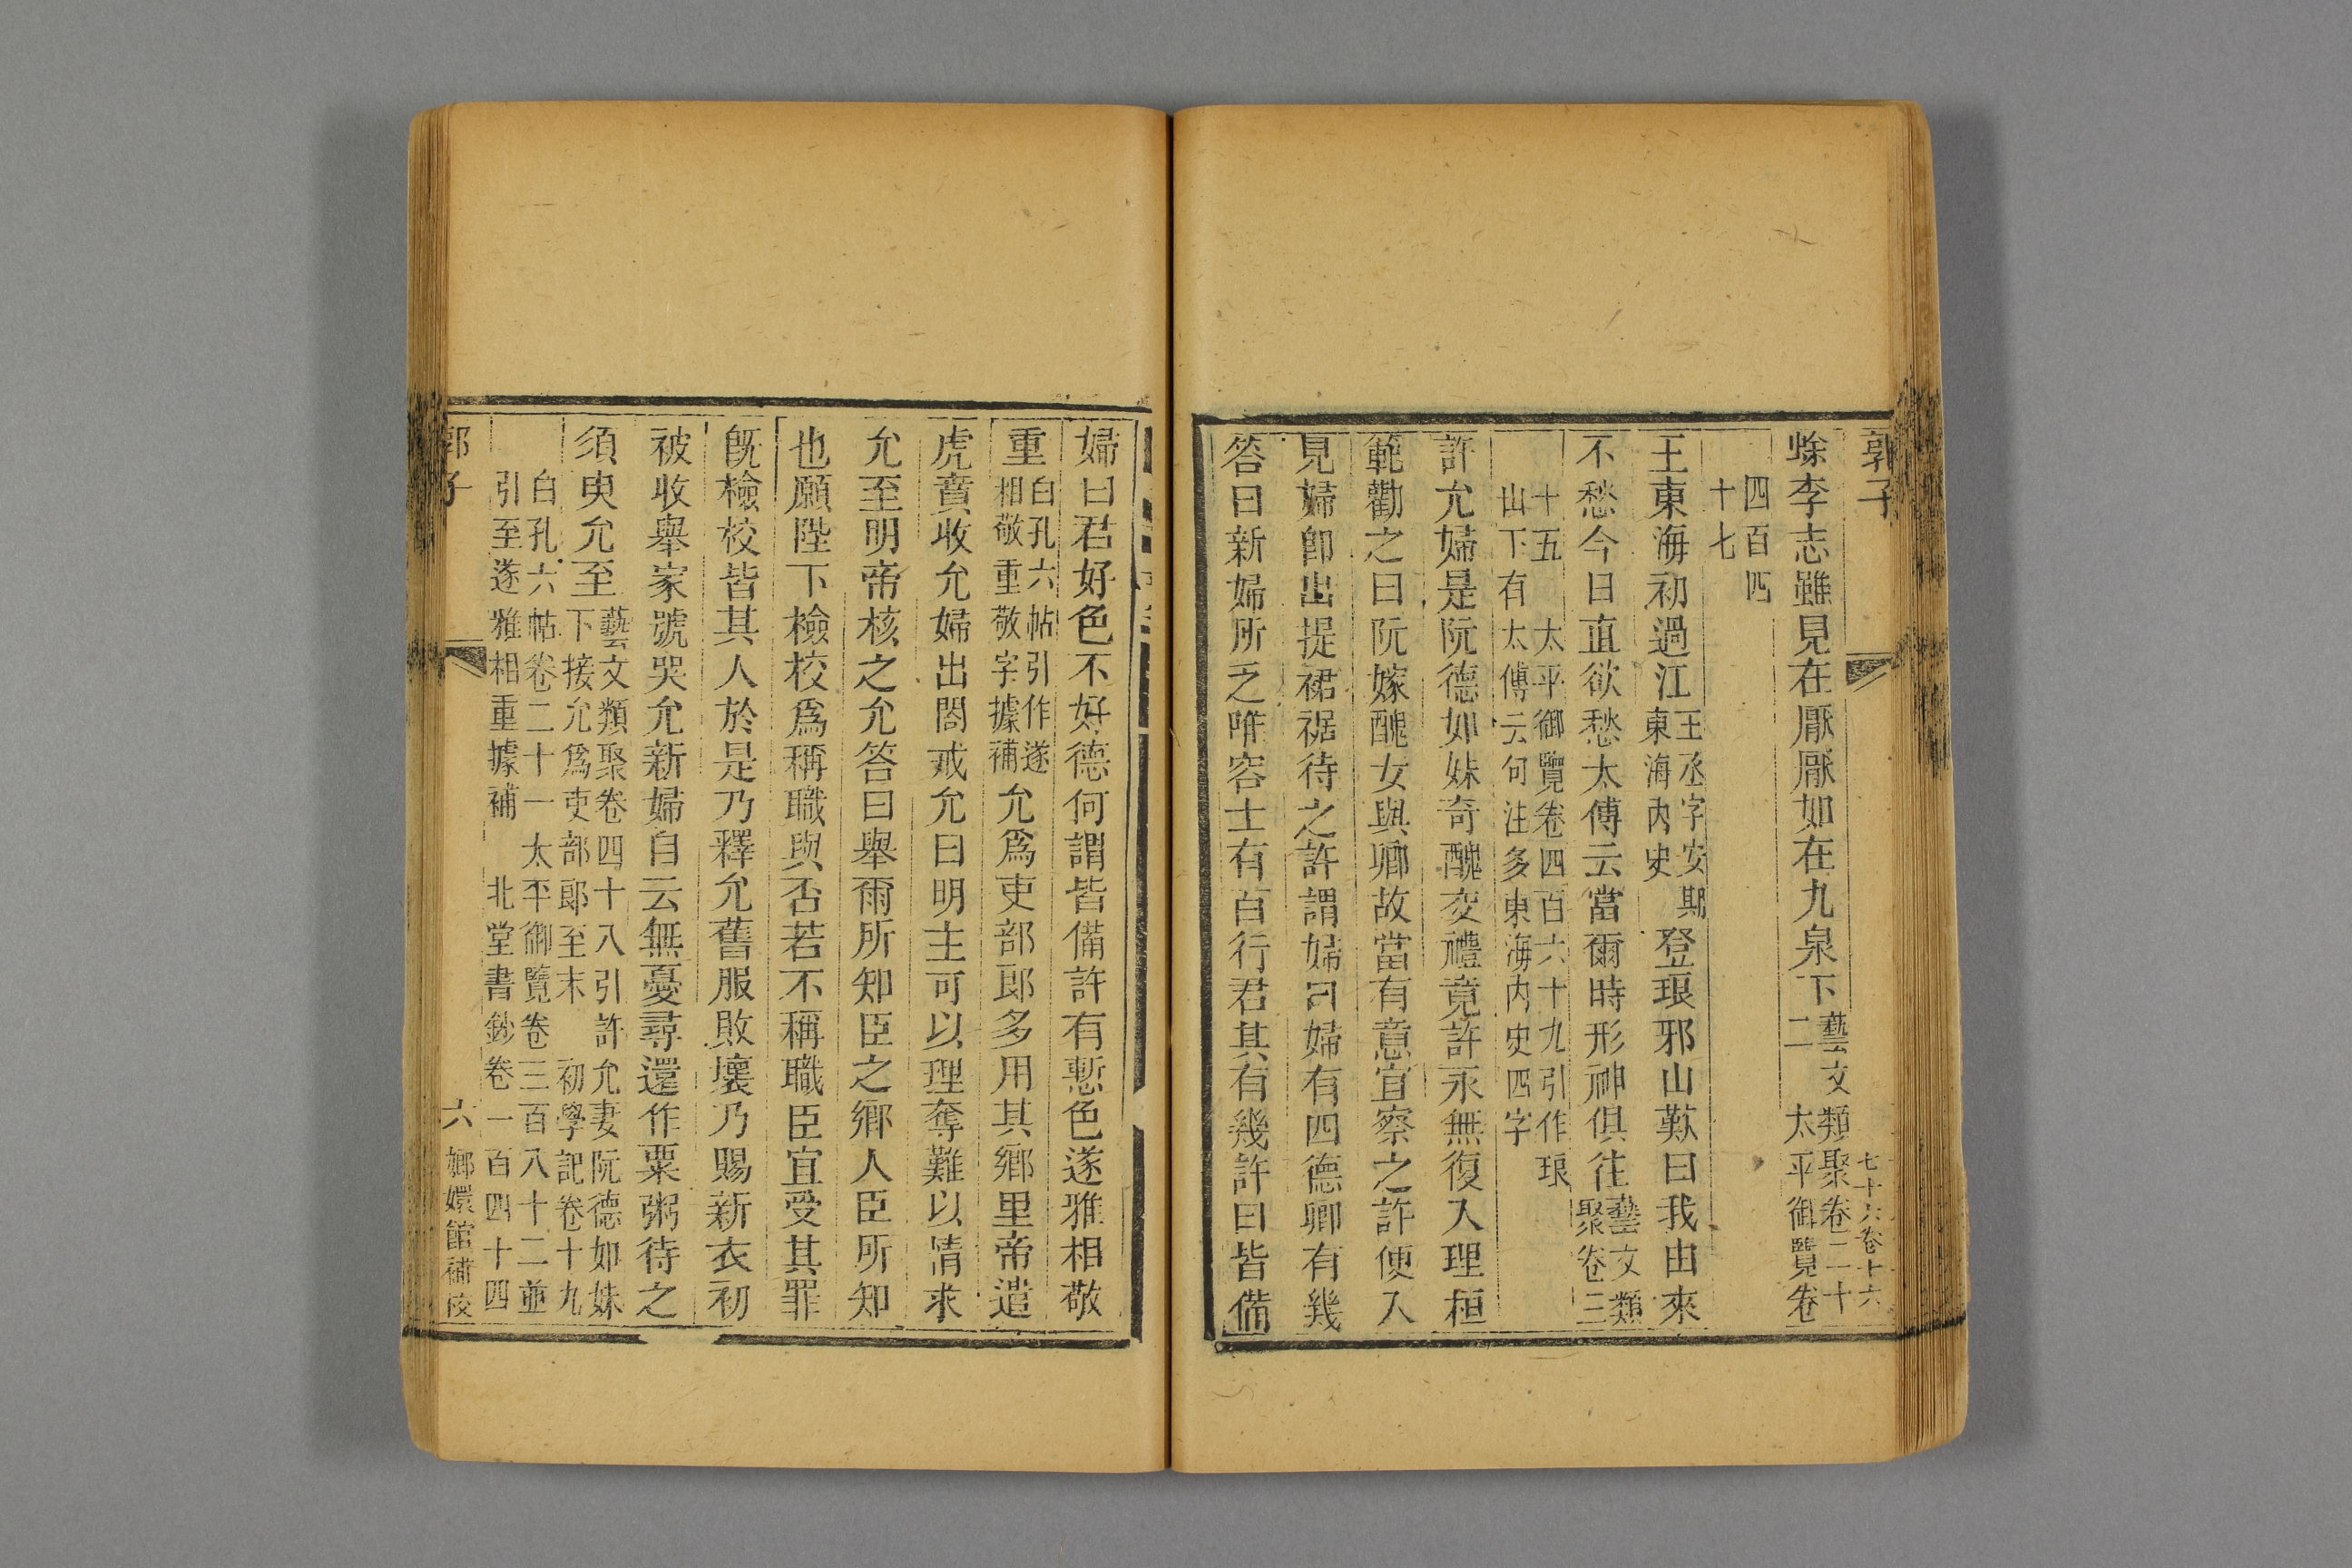 郭子
七十六卷十六
蜍李志雖見在厭厭如在九泉下藝文類聚卷二十
二 太平御覽卷
四百四
十七
王東海初過江王丞字安期登琅邪山歎曰我由來
東海內史
不愁今日直欲愁太傅云當爾時形神俱往藝文類
聚卷三
十五 太平御覽卷四百六十九引作琅
山下有太傅云何注多東海內史四字
許允婦是阮德如妹奇醜交禮竟許永無復入理桓
範勸之曰阮嫁醜女與卿故當有意宜察之許便入
見婦卽出提裙裾待之許謂婦曰婦有四德卿有幾
答曰新婦所乏唯容士有百行君其有幾許曰皆備
婦曰君好色不好德何謂皆備許有慙色遂雅相敬
重白孔六帖引作遂
相敬重敬字據補允爲吏部郞多用其鄉里帝遣
虎賁收允婦出閤戒允曰明主可以理奪難以情求
允至明帝核之允答曰舉爾所知臣之鄉人臣所知
也願陛下檢校爲稱職與否若不稱職臣宜受其罪
旣檢校皆其人於是乃釋允舊服敗壞乃賜新衣初
被收舉家號哭允新婦自云無憂尋還作粟粥待之
須臾允至藝文類聚卷四十八引許允妻阮德如妹
下接允爲吏部郞至末 初學記卷十九
白孔六帖卷二十一 太平御覽卷三百八十二並
引至遂雅相重據補 北堂書鈔卷一百四十四
郭子
六
嫏嬛館補校